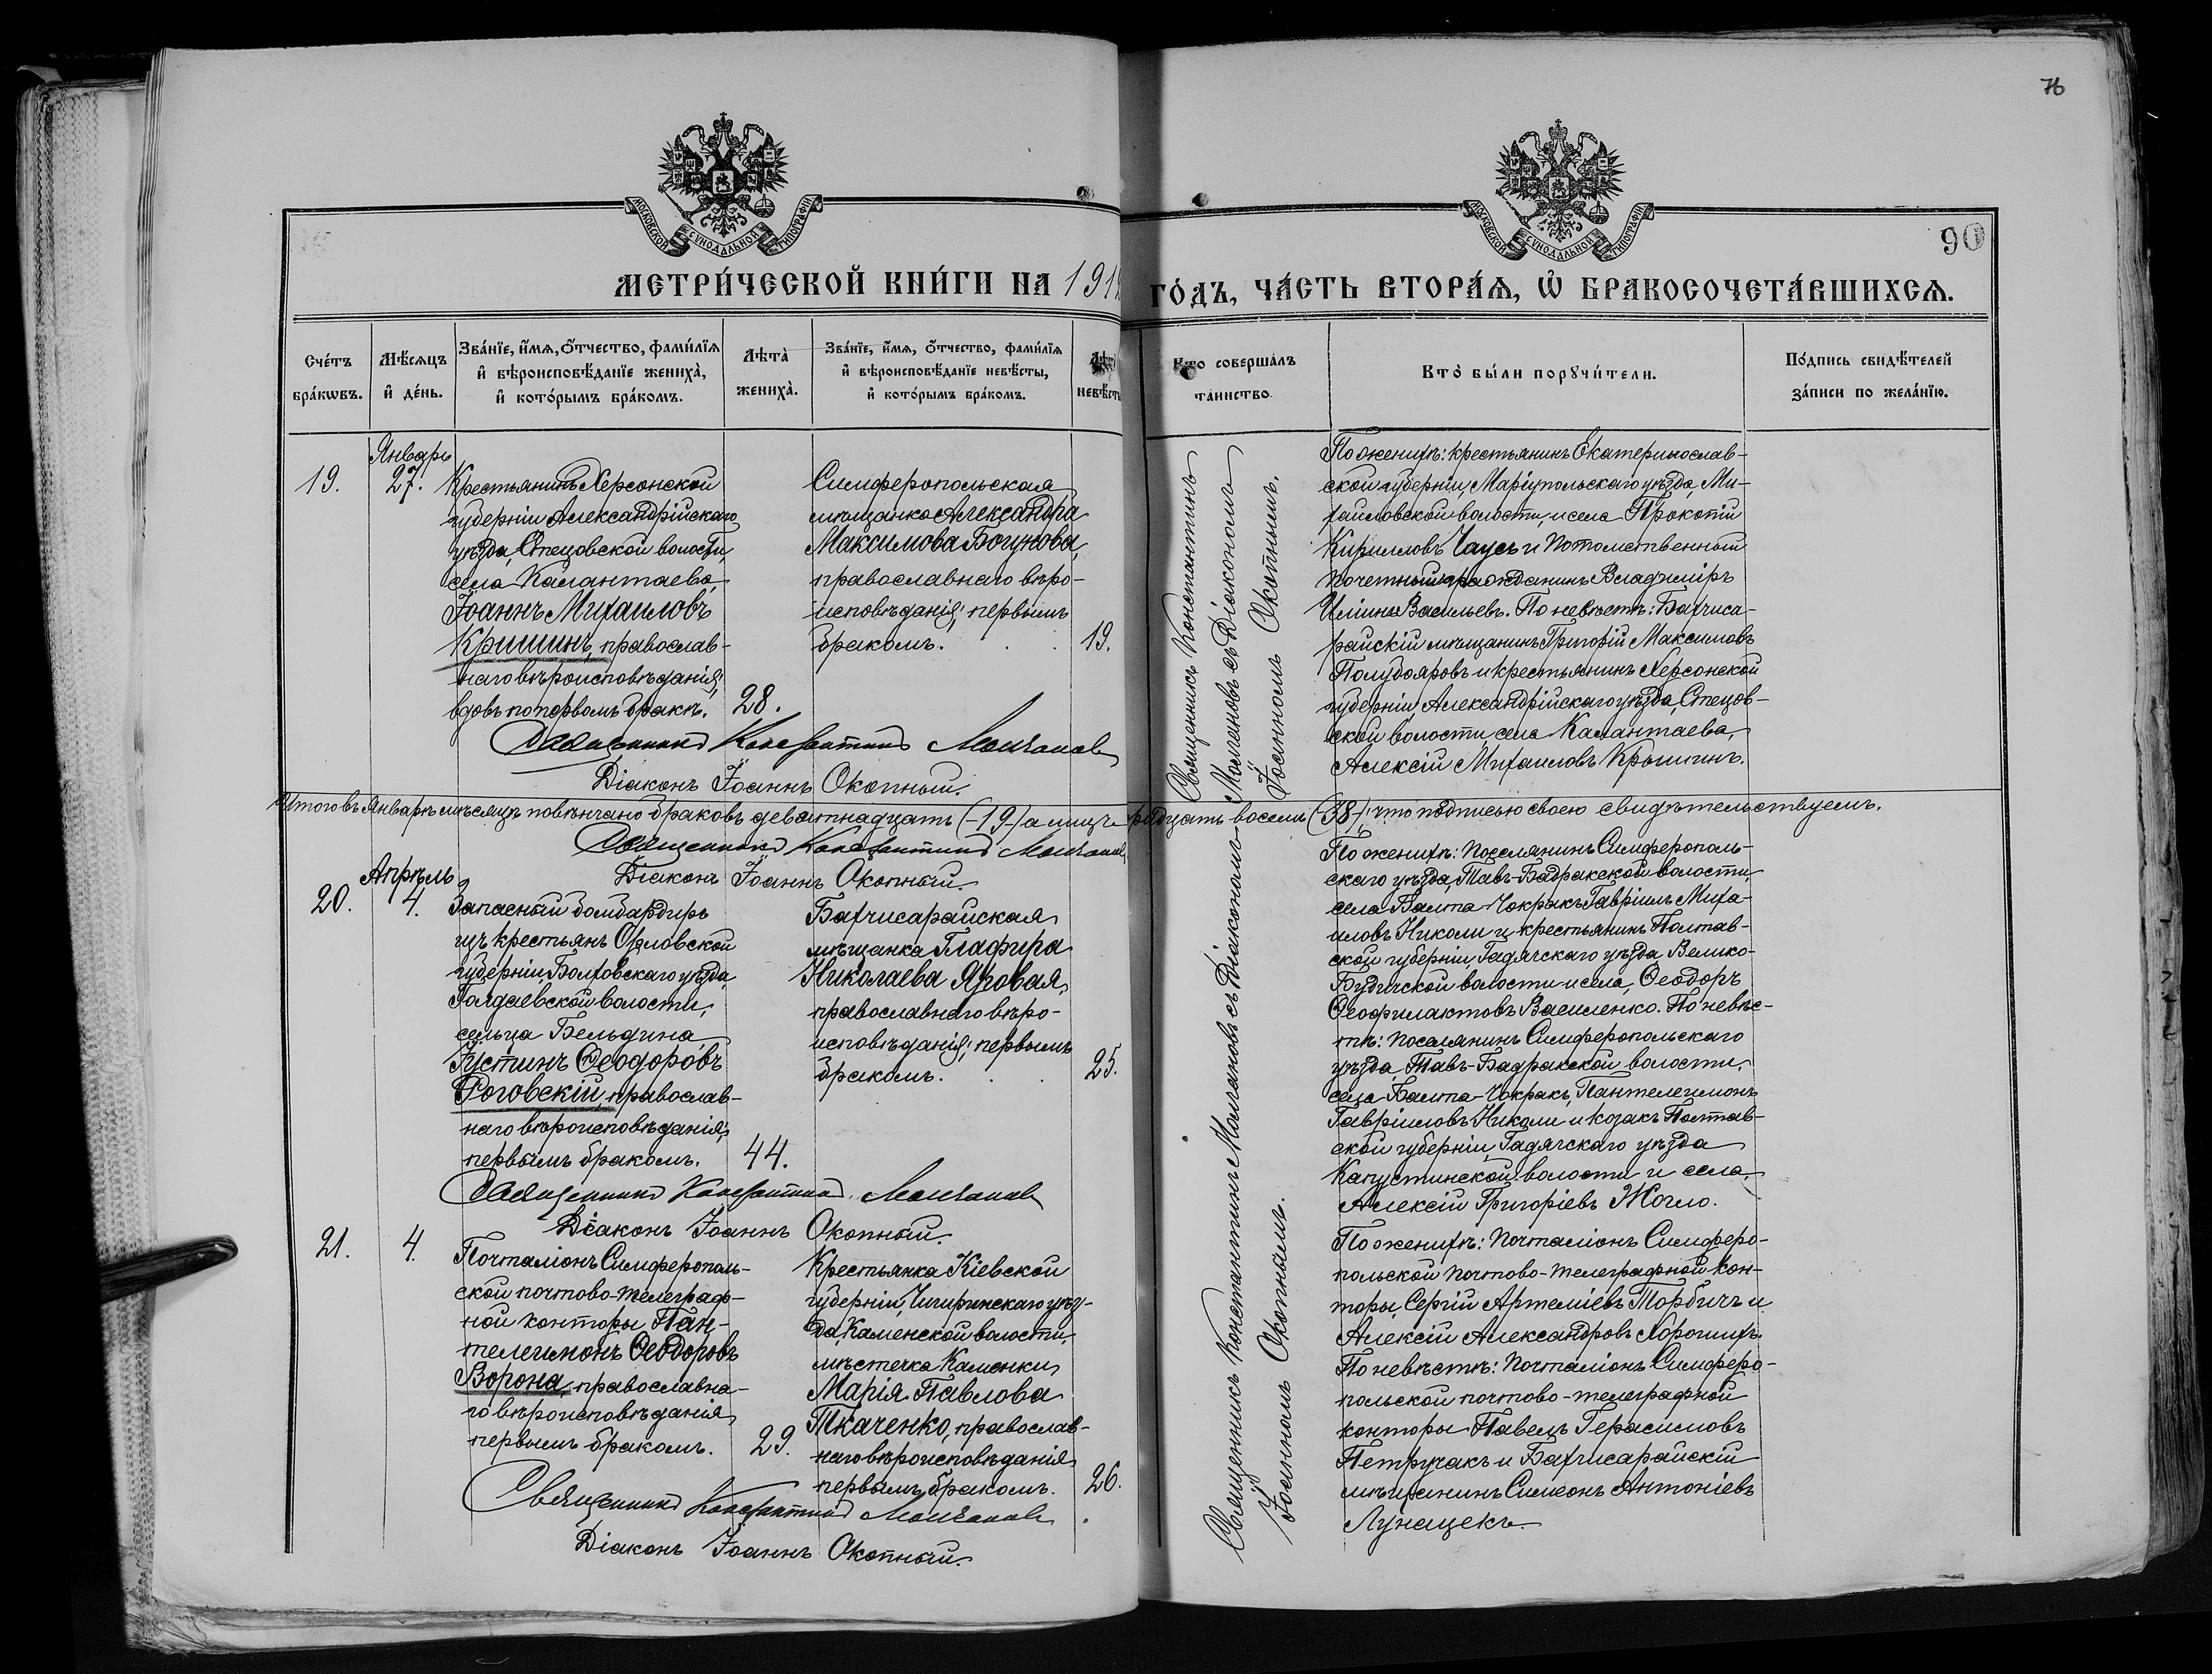 76
МОСКОВСКОЙ СѴНОДАЛЬНОЙ ТИПОГРАФІИ
МОСКОВСКОЙ СѴНОДАЛЬНОЙ ТИПОГРАФІИ
90
МЕТРИ́ЧЕСКОЙ КНИ́ГИ НА 191
ГО́ДЪ, ЧА́СТЬ ВТОРА́Ѧ, Ѽ БРАКОСОЧЕТА́ВШИХСѦ.
Сче́тъ бра́кѡвъ.
Мѣ́сѧцъ и҆ де́нь.
Зва́нїе, и҆́мѧ, ѻ҆́тчество, фами́лїѧ и҆ вѣроисповѣ́данїе жениха̀, и҆ кото́рымъ бра́комъ.
Лѣта̀ жениха̀.
Зва́нїе, и҆́мѧ, ѻ҆́тчество, фами́лїѧ и҆ вѣроисповѣ́данїе невѣ́сты, и҆ кото́рымъ бра́комъ.
Лѣта̀ невѣ́сты
Кто соверша́лъ та́инство.
Кто̀ бы́ли порꙋчи́тели.
По́дпись свидѣ́телей за́писи по жела́нїю.
Январь
19.
27.
Крестьянинъ Херсонской
губерніи Александрійскаго
уѣзда, Стецовской волости,
села Калантаева,
Іоаннъ Михаиловъ
Кришинъ, православ-
наго вѣроисповѣданія,
вдовъ по первомъ бракѣ.
28.
Симферопольская
мѣщанка Александра
Максимова Богунова
православнаго вѣро-
исповѣданія; первымъ
бракомъ.
19.
Священникъ Константинъ Молчановъ
Діаконъ Іоаннъ Окопный.
Священникъ Константинъ
Молчановъ съ Діакономъ
Іоанномъ Окопнымъ.
По женихѣ: крестьянинъ Екатеринослав-
ской губерніи, Маріупольскаго уѣзда, Ми-
хаиловской волости, и села Прокопій
Кирилловъ Чаусъ и Потомственный
почетный гражданинъ Владиміръ
Иліинъ Васильевъ. По невѣстѣ: Бахчиса-
райскій мѣщанинъ Григорій Максимовъ
Полубояровъ и крестьянинъ Херсонской
губерніи Александрійскаго уѣзда, Стецов-
ской волости села Калантаева,
Алексій Михаиловъ Крышинъ.
Итого въ Январѣ мѣсяцѣ повѣнчано браковъ девятнадцать (-19-) а лицъ тридцать восемь (-38-); что подписью своею свидѣтельствуемъ.
Священникъ Константинъ Молчановъ
Діаконъ Іоаннъ Окопный.
Апрѣль
20.
4.
Запасный бомбардиръ
изъ крестьянъ Орловской
губерніи, Болховскаго уѣзда,
Голдаевской волости,
сельца Бельдина
Іустинъ Ѳеодоровъ
Роговскій, православ-
наго вѣроисповѣданія,
первымъ бракомъ.
44.
Бахчисарайская
мѣщанка Глафира
Николаева Яровая,
православнаго вѣро-
исповѣданія; первымъ
бракомъ.
25.
Священникъ Константинъ Молчановъ
Діаконъ Іоаннъ Окопный.
По женихѣ: поселянинъ Симферополь-
скаго уѣзда, Тавъ-Бадракской волости,
села Балта-Чокракъ Гавріилъ Миха-
иловъ Николи и крестьянинъ Полтав-
ской губерніи, Гадячскаго уѣзда, Велико-
Будичской волости и села, Ѳеодоръ
Ѳеофилактовъ Василенко. По невѣс-
тѣ: поселянинъ Симферопольскаго
уѣзда, Тавъ-Бадракской волости,
села Балта-Чокракъ, Пантелеимонъ
Гавріиловъ Николи и козакъ Полтав-
ской губерніи, Гадячскаго уѣзда
Капустинской волости и села,
Алексій Григоріевъ Жогло.
Священникъ Константинъ Молчановъ съ Діакономъ
Іоанномъ Окопнымъ.
21.
4.
Почталіонъ Симферополь-
ской почтово-телеграф-
ной конторы Пан-
телеимонъ Ѳеодоровъ
Ворона, православна-
го вѣроисповѣданія,
первымъ бракомъ.
29.
Крестьянка Кіевской
губерніи, Чигиринскаго уѣз-
да, Каменской волости,
мѣстечка Каменки,
Марія Павлова
Ткаченко, православ-
наго вѣроисповѣданія
первымъ бракомъ.
26.
Священникъ Константинъ Молчановъ
Діаконъ Іоаннъ Окопный.
По женихѣ: почталіонъ Симферо-
польской почтово-телеграфной кон-
торы, Сергій Артеміевъ Торбичъ и
Алексій Александровъ Хорошихъ.
По невѣстѣ: почталіонъ Симферо-
польской почтово-телеграфной
конторы Павелъ Герасимовъ
Петручакъ и Бахчисарайскій
мѣщанинъ Симеонъ Антоніевъ
Лунащекъ.